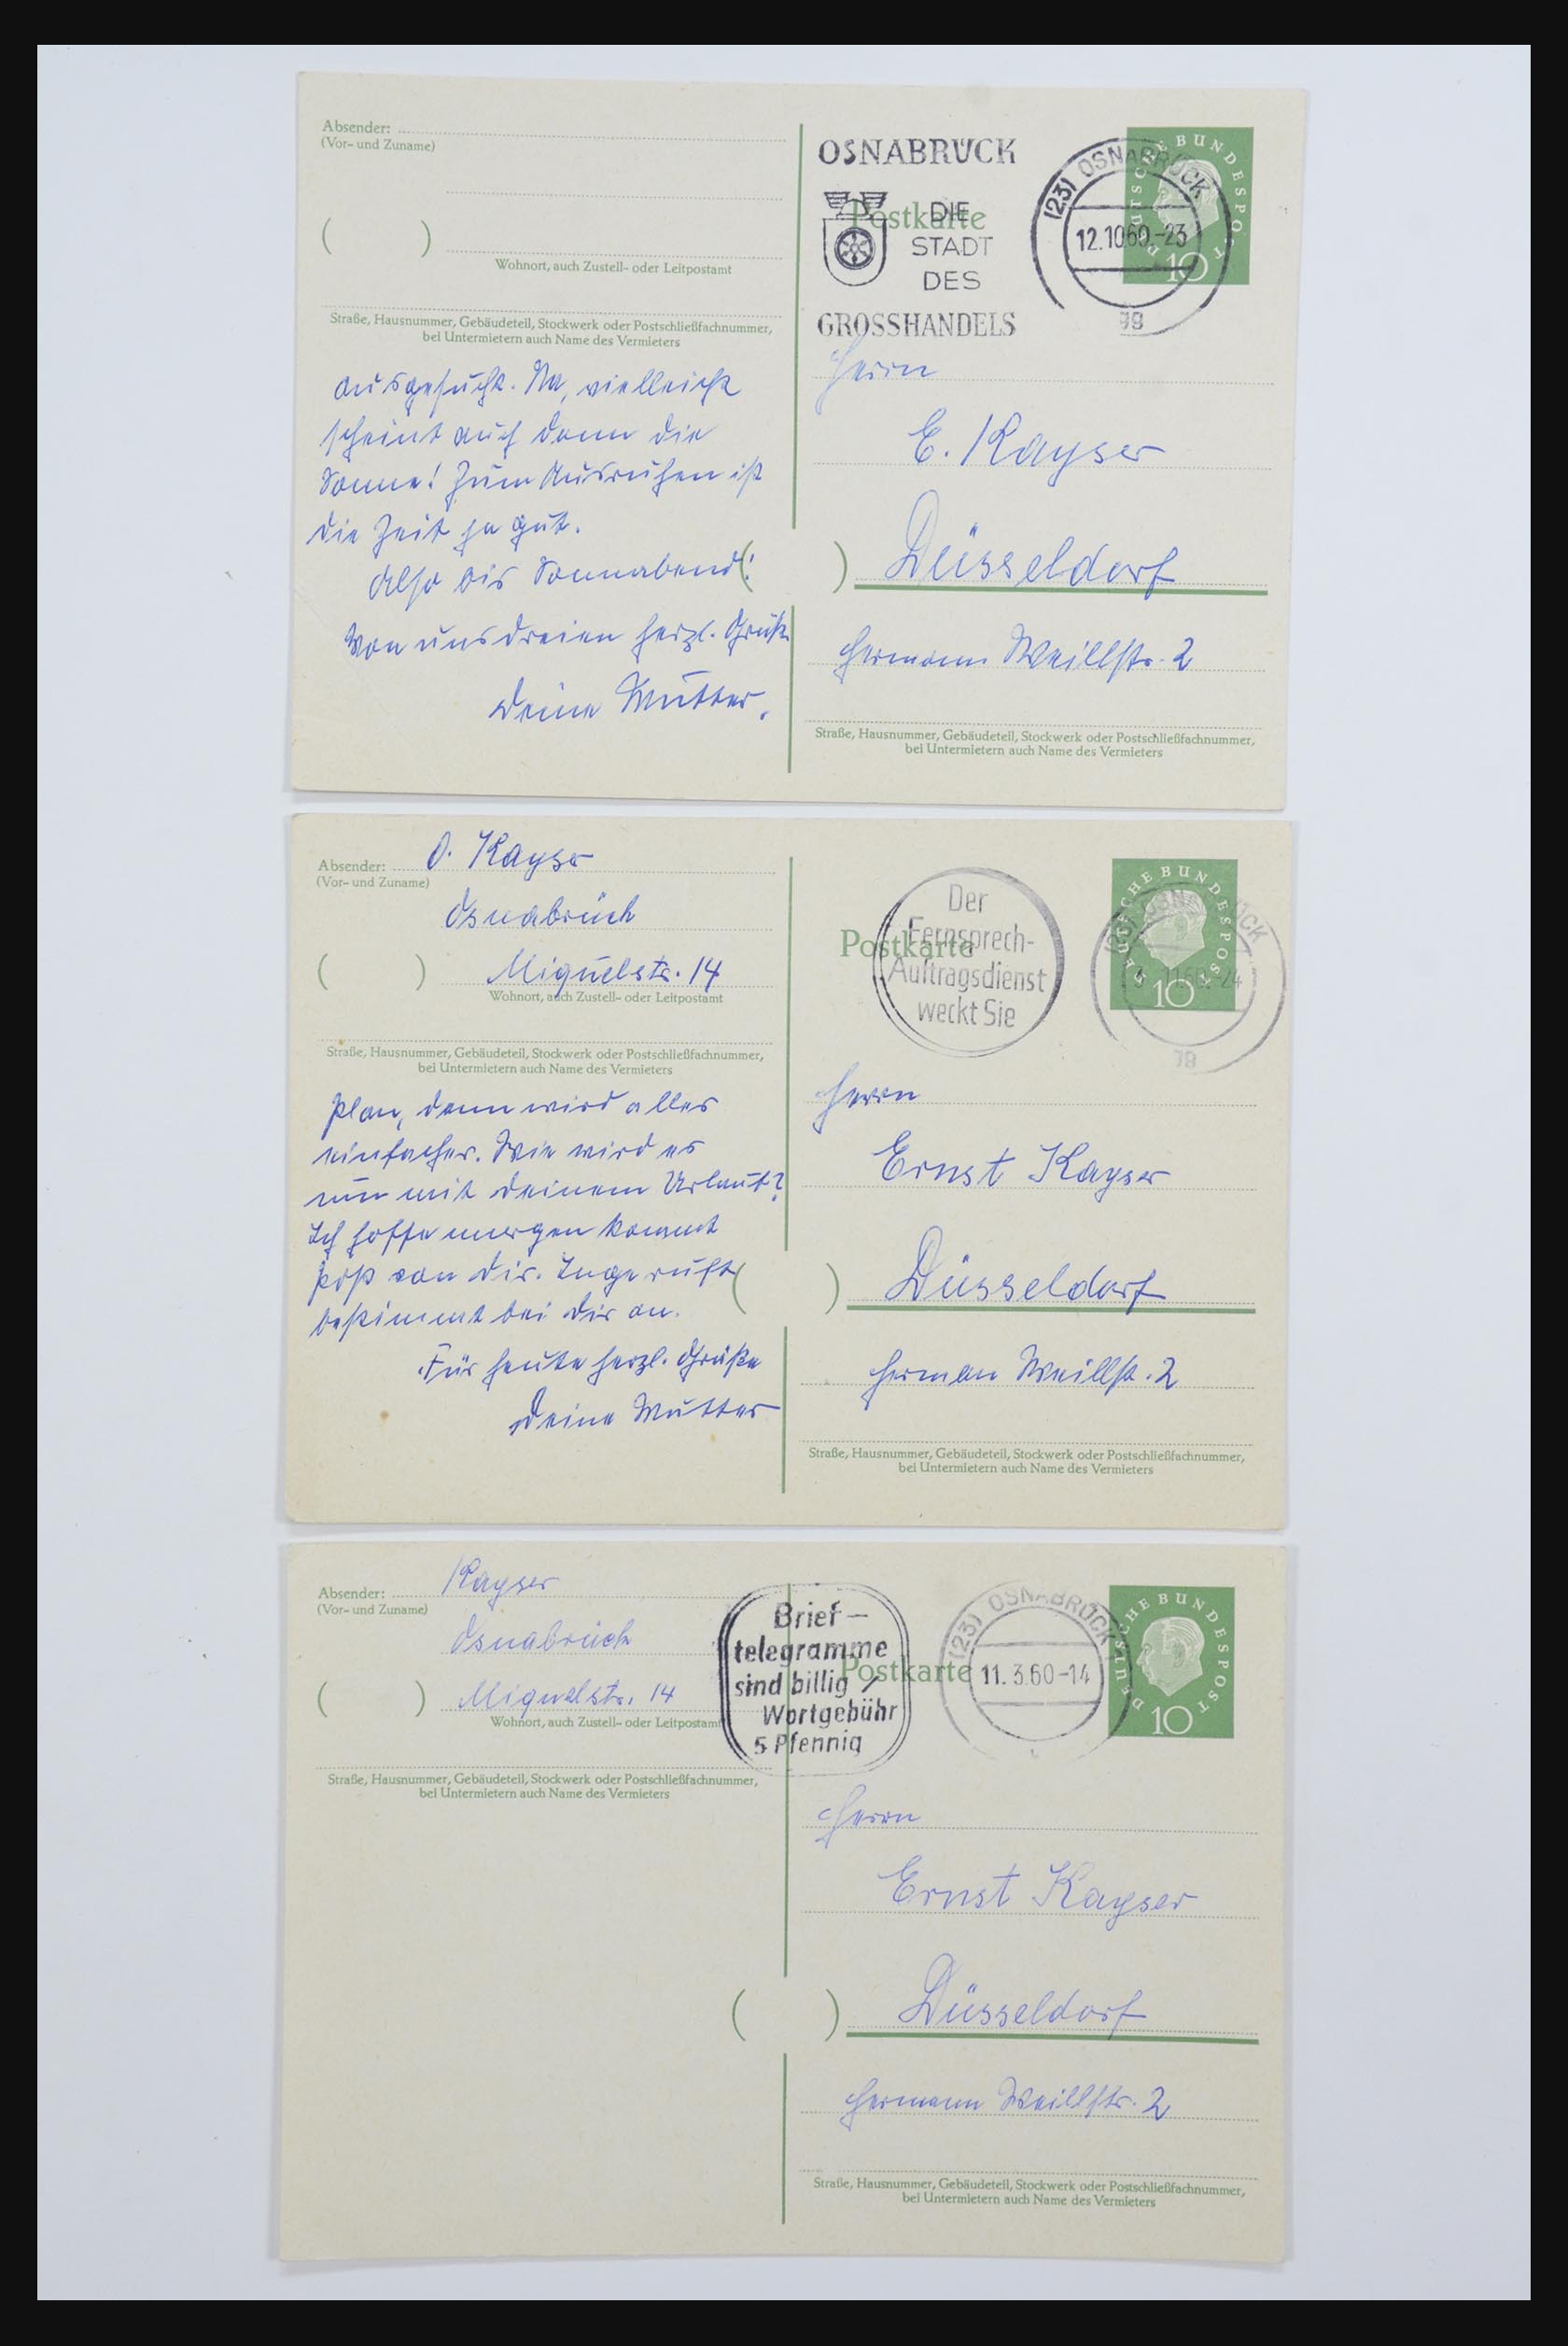 Absender:
(Vor- und Zuname)
( )
Wohnort, auch Zustell- oder Leitpostamt
Straße, Hausnummer, Gebäudeteil, Stockwerk oder Postschließfachnummer,
bei Untermietern auch Name des Vermieters
ausgesucht. Na, vielleicht
scheint auch dann die
Sonne! Zum Ausruhen ist
die Zeit ja gut.
Also bis Sonnabend!
Von uns dreien herzl. Grüße
Deine Mutter.
OSNABRÜCK
DIE
STADT
DES
GROSSHANDELS
Postkarte
(23) OSNABRÜCK
12.10.60.-23
gg
DEUTSCHE BUNDESPOST
10
Herrn
E. Kayser
( ) Düsseldorf
Hermann Weillstr. 2
Straße, Hausnummer, Gebäudeteil, Stockwerk oder Postschließfachnummer,
bei Untermietern auch Name des Vermieters
Absender: O. Kayser
(Vor- und Zuname)
Osnabrück
( ) Miquelstr. 14
Wohnort, auch Zustell- oder Leitpostamt
Straße, Hausnummer, Gebäudeteil, Stockwerk oder Postschließfachnummer,
bei Untermietern auch Name des Vermieters
Plan, dann wird alles
einfacher. Wie wird es
nun mit deinem Urlaub?
Ich hoffe morgen kommt
Post von dir. Inge ruft
bestimmt bei dir an.
Für heute herzl. Grüße
Deine Mutter
Der
Fernsprech-
Auftragsdienst
weckt Sie
Postkarte
OSNABRÜCK
DEUTSCHE BUNDESPOST
10
Herrn
Ernst Kayser
( ) Düsseldorf
Herman Weillst. 2
Straße, Hausnummer, Gebäudeteil, Stockwerk oder Postschließfachnummer,
bei Untermietern auch Name des Vermieters
Absender: Kayser
(Vor- und Zuname)
Osnabrück
( ) Miquelstr. 14
Wohnort, auch Zustell- oder Leitpostamt
Straße, Hausnummer, Gebäudeteil, Stockwerk oder Postschließfachnummer,
bei Untermietern auch Name des Vermieters
Brief-
telegramme
sind billig /
Wortgebühr
5 Pfennig
Postkarte
(23) OSNABRÜCK
11.3.60-14
DEUTSCHE BUNDESPOST
10
Herrn
Ernst Kayser
( ) Düsseldorf
Hermann Weillstr. 2
Straße, Hausnummer, Gebäudeteil, Stockwerk oder Postschließfachnummer,
bei Untermietern auch Name des Vermieters